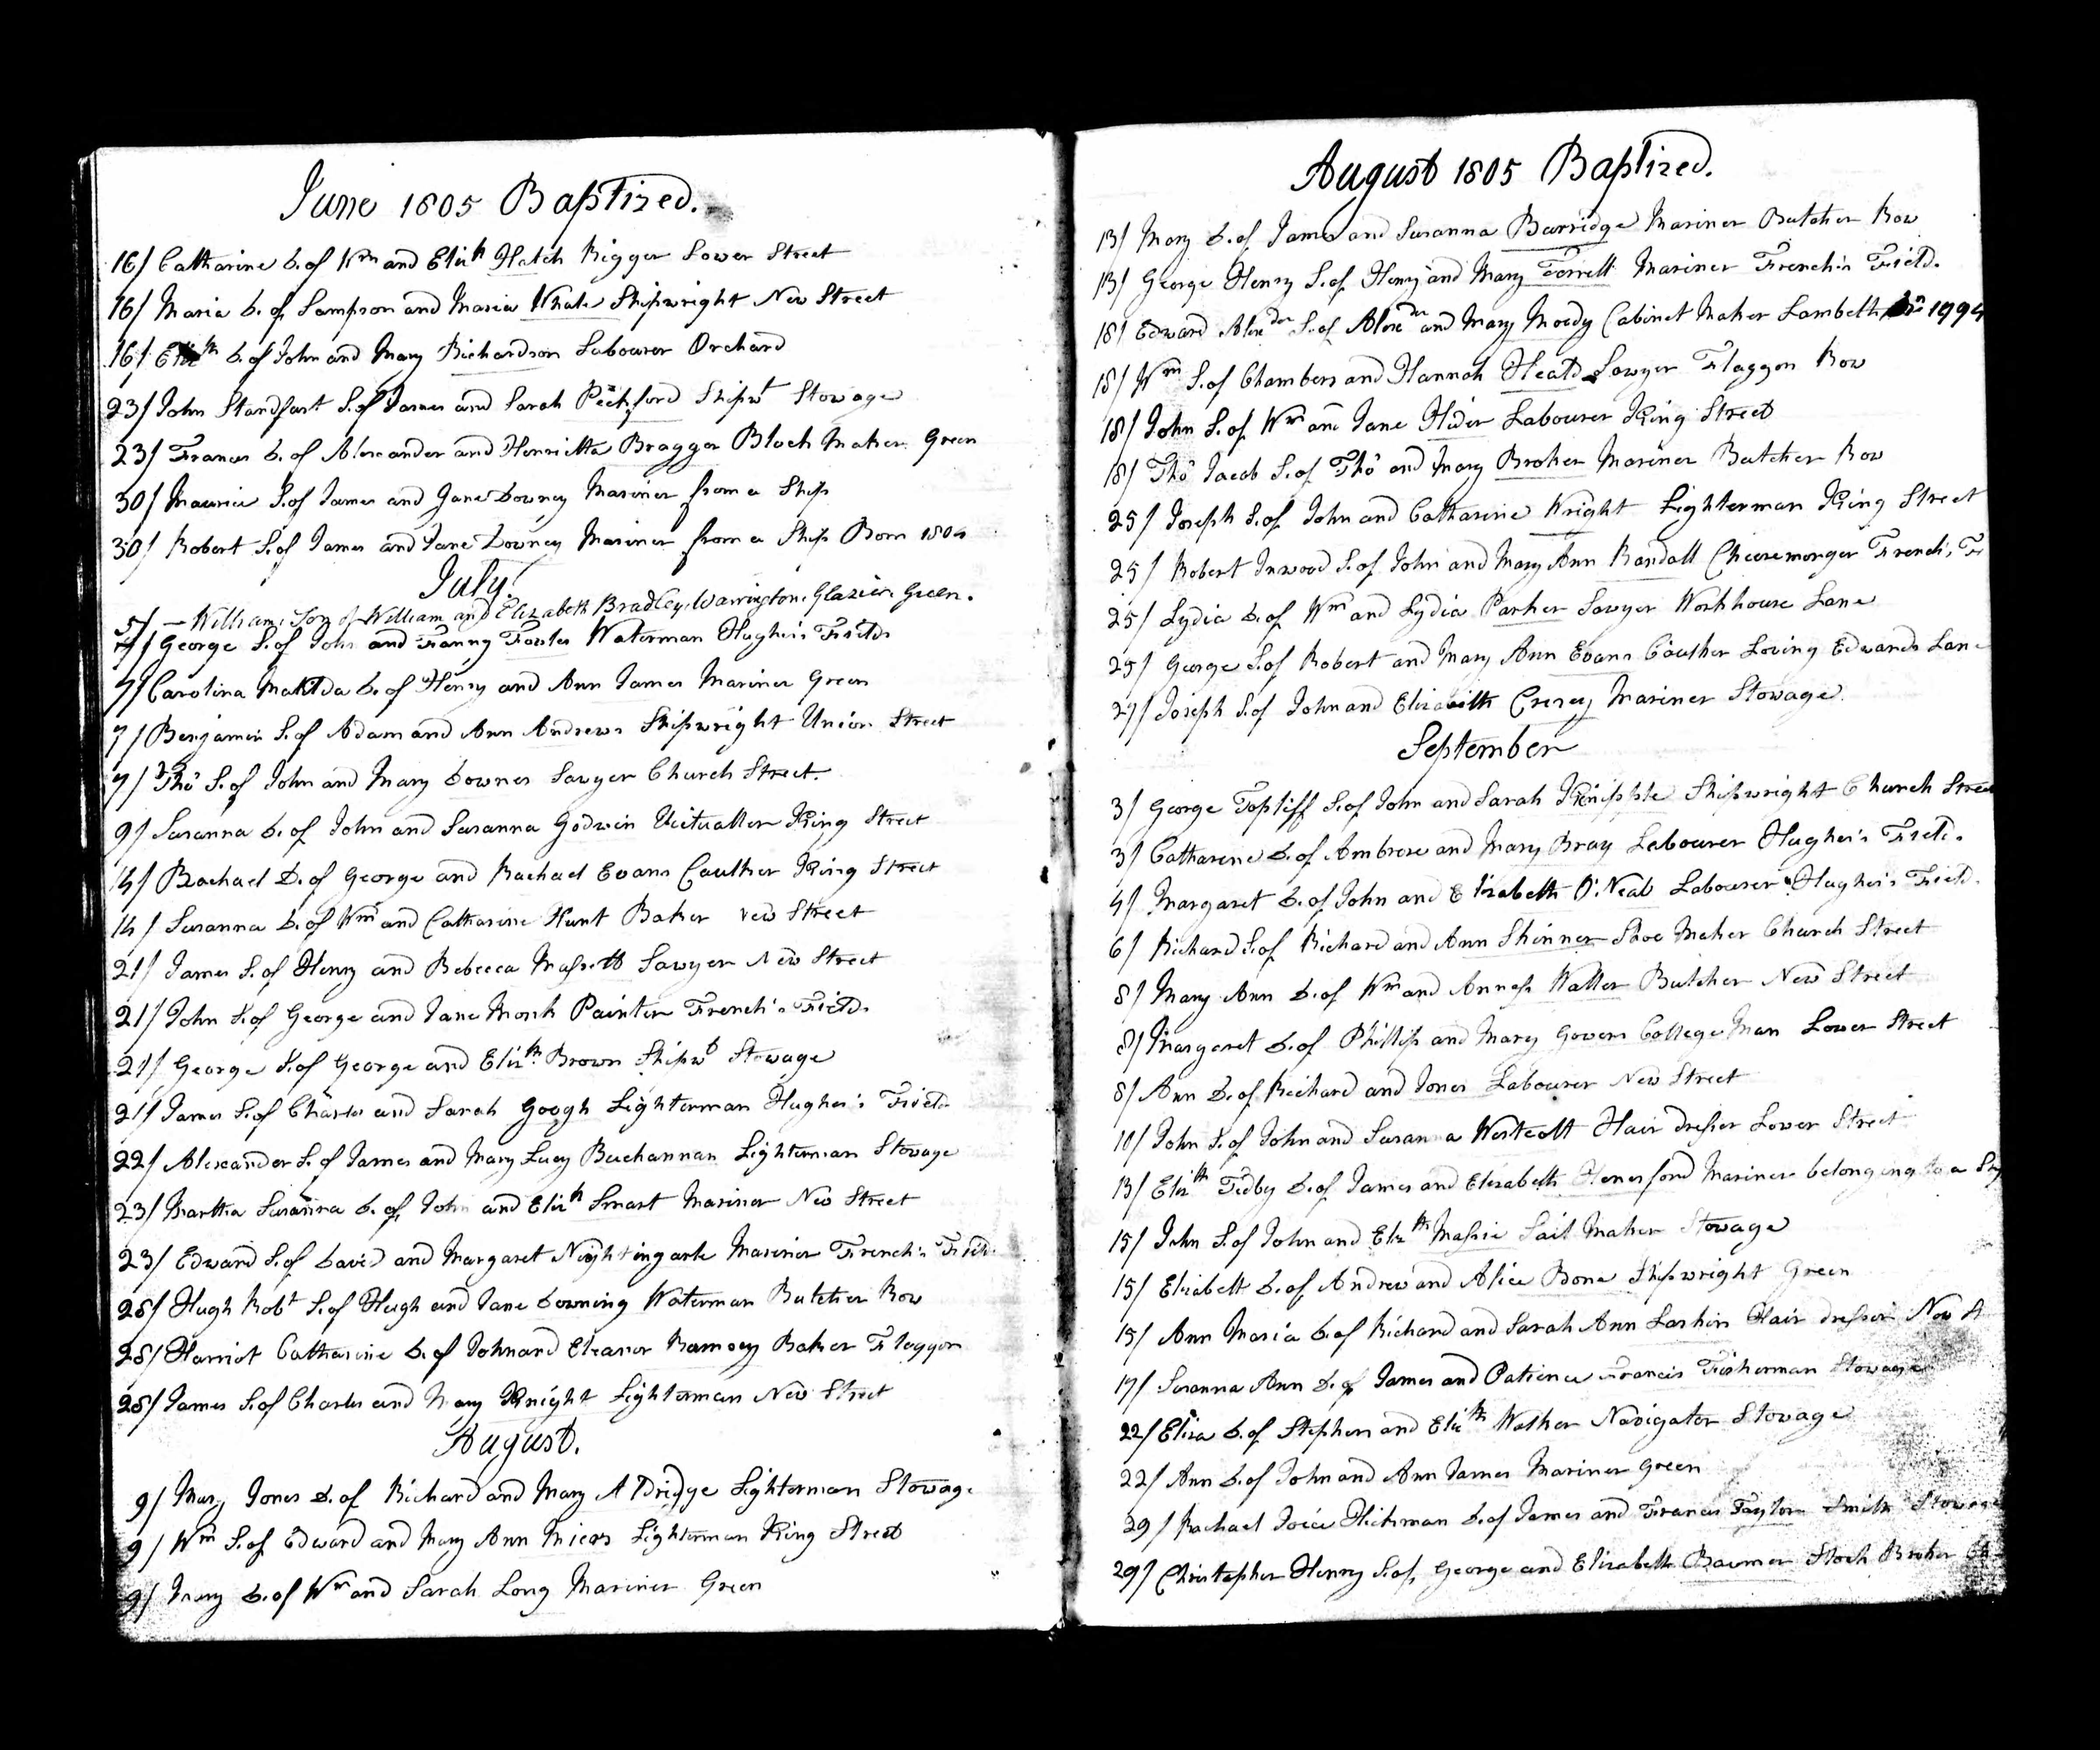 June 1805 Baptized.
16/ Catharine D. of Wm and Elizth Hatch Rigger Lower Street
16/ Maria D. of Sampson and Maria Whale Shipwright New Street
16/ Elizth D. of John and Mary Richardson Labourer Orchard
23/ John Standfast S. of James and Sarah Peckford Shipwt Stowage
23/ Frances D. of Alexander and Henrietta Bragger Block Maker Green
30/ Maurice S. of James and Jane Downey Mariner from a Ship
30/ Robert S. of James and Jane Downey Mariner from a Ship Born 1804
July.
5/ — William, Son of William and Elizabeth Bradley, Warrington, Glazier, Green.
7/ George S. of John and Fanny Fowler Waterman Hughes's Fields
7/ Carolina Matilda D. of Henry and Ann James Mariner Green
7/ Benjamin S. of Adam and Ann Andrews Shipwright Union Street
7/ Thos S. of John and Mary Downes Sawyer Church Street.
9/ Susanna D. of John and Susanna Godwin Victualler King Street
14/ Rachael D. of George and Rachael Evans Caulker King Street
14/ Susanna D. of Wm and Catharine Hunt Baker New Street
21/ James S. of Henry and Rebecca Massett Sawyer New Street
21/ John S. of George and Jane Monk Painter French's Fields
21/ George S. of George and Elizth Brown Shipwt Stowage
21/ James S. of Charles and Sarah Googh Lighterman Hughes's Fields
22/ Alexander S. of James and Mary Lucy Buchannan Lighterman Stowage
23/ Martha Susanna D. of John and Elizth Smart Mariner New Street
23/ Edward S. of David and Margaret Nightingale Mariner French's Fields
28/ Hugh Robt S. of Hugh and Jane Downing Waterman Butcher Row
28/ Harriot Catharine D. of John and Eleanor Ramsey Baker Flaggon
28/ James S. of Charles and Mary Knight Lighterman New Street
August.
9/ Mary Jones D. of Richard and Mary Aldridge Lighterman Stowage
9/ Wm S. of Edward and Mary Ann Miers Lighterman King Street
9/ Mary D. of Wm and Sarah Long Mariner Green
August 1805 Baptized.
13/ Mary D. of James and Susanna Burridge Mariner Butcher Row
13/ George Henry S. of Henry and Mary Terrell Mariner French's Field.
18/ Edward Alexder S. of Alexder and Mary Moody Cabinet Maker Lambeth 1794
18/ Wm S. of Chambers and Hannah Heald Sawyer Flaggon Row
18/ John S. of Wm and Jane Hider Labourer King Street
18/ Thos Jacob S. of Thos and Mary Broker Mariner Butcher Row
25/ Joseph S. of John and Catharine Wright Lighterman King Street
25/ Robert Inwood S. of John and Mary Ann Randall Cheesemonger French's Fi
25/ Lydia D. of Wm and Lydia Parker Sawyer Workhouse Lane
25/ George S. of Robert and Mary Ann Evans Caulker Loving Edwards Lane
27/ Joseph S. of John and Elizabeth Cresey Mariner Stowage
September
3/ George Topliff S. of John and Sarah Knipple Shipwright Church Street
3/ Catharine D. of Ambrose and Mary Bray Labourer Hughes's Field.
4/ Margaret D. of John and Elizabeth O'Neal Labourer Hughes's Field.
6/ Richard S. of Richard and Ann Skinner Shoe Maker Church Street
8/ Mary Ann D. of Wm and Anness Waller Butcher New Street
8/ Margaret D. of Phillip and Mary Govers College Man Lower Street
8/ Ann D. of Richard and Jones Labourer New Street
10/ John S. of John and Susanna Westcott Hair dresser Lower Street
13/ Elizth Fedby D. of James and Elizabeth Hemesford Mariner belonging to a Sh
15/ John S. of John and Elizth Massie Sail Maker Stowage
15/ Elizabeth D. of Andrew and Alice Bone Shipwright Green
15/ Ann Maria D. of Richard and Sarah Ann Larkin Hair dresser New St
17/ Susanna Ann D. of James and Patience Francis Fisherman Stowage
22/ Eliza D. of Stephen and Elizth Walker Navigator Stowage
22/ Ann D. of John and Ann James Mariner Green
29/ Rachael Joice Hickman D. of James and Frances Taylor Smith Stowage
29/ Christopher Henry S. of George and Elizabeth Baumer Stock Broker